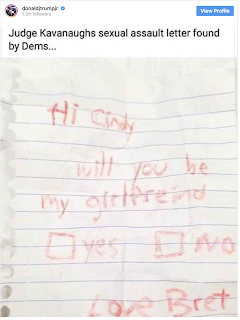 donaldjtrumpjr
1.5m followers
View Profile
Judge Kavanaughs sexual assault letter found
by Dems...
Hi Cindy
will you be
my girlfreind
yes No
Love Bret